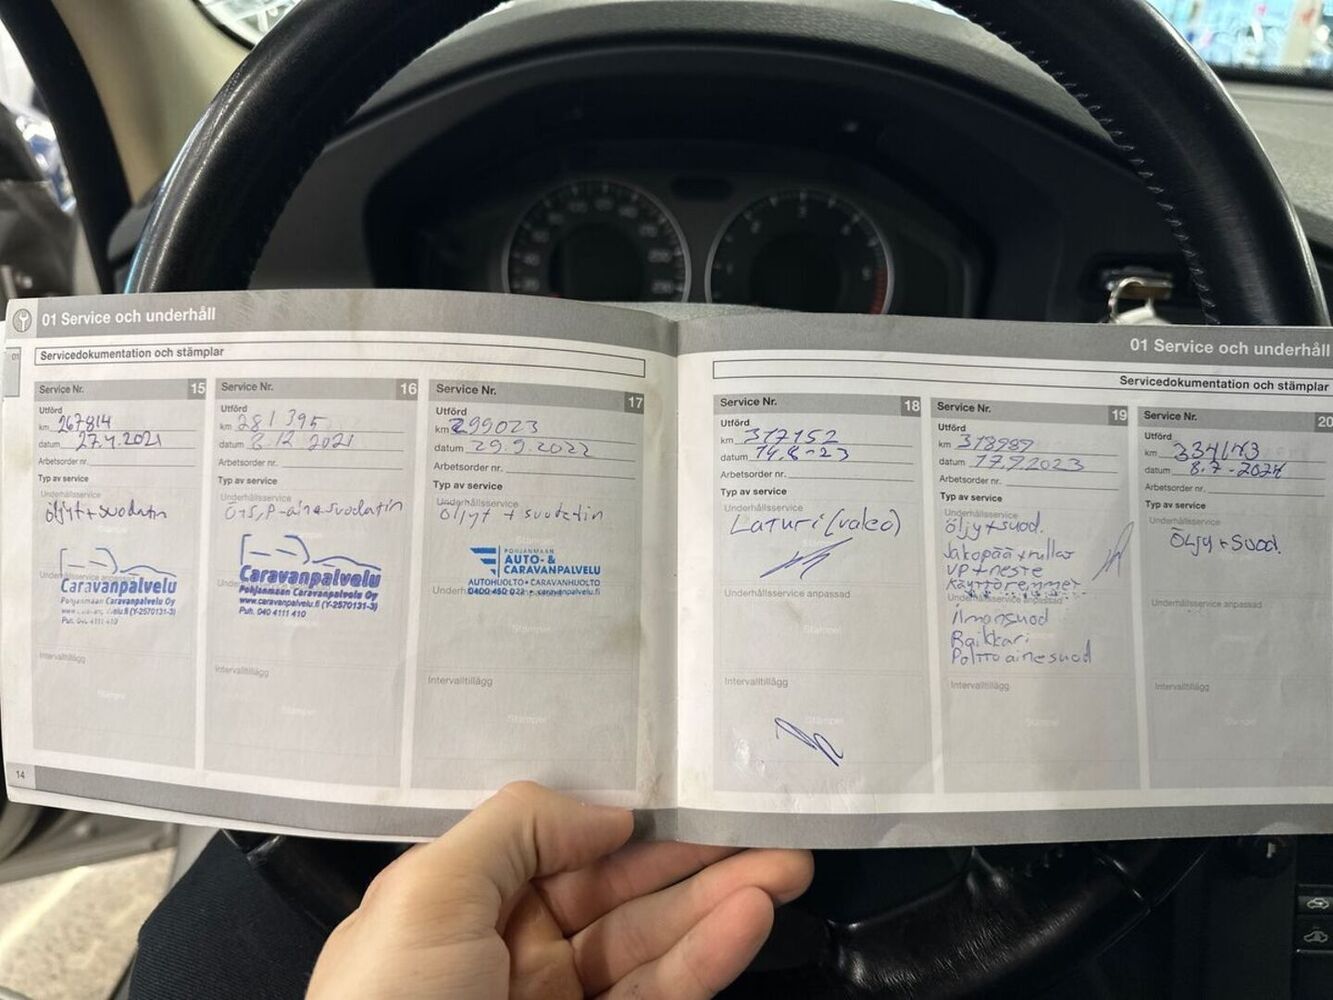 01 Service och underhåll
Servicedokumentation och stämplar
Service Nr. 15
Utförd
km 267814
datum 27.4.2021
Arbetsorder nr.
Typ av service
Underhållsservice
öljyt + suodatin
Caravanpalvelu
Pohjanmaan Caravanpalvelu Oy
(Y-2570131-3)
Puh. 040 4111 410
Intervalltillägg
Stämpel
14
Service Nr. 16
Utförd
km 281 395
datum 8.12 2021
Arbetsorder nr.
Typ av service
Underhållsservice
Caravanpalvelu
Pohjanmaan Caravanpalvelu Oy
www.caravanpalvelu.fi (Y-2570131-3)
Puh. 040 4111 410
Intervalltillägg
Stämpel
Service Nr. 17
Utförd
km 299023
datum 29.9.2022
Arbetsorder nr.
Typ av service
Underhållsservice
öljyt + suodatin
POHJANMAAN
AUTO- &
CARAVANPALVELU
AUTOHUOLTO • CARAVANHUOLTO
Stämpel
Intervalltillägg
Stämpel
01 Service och underhåll
Servicedokumentation och stämplar
Service Nr. 18
Utförd
km 317152
datum 14.8-23
Arbetsorder nr.
Typ av service
Underhållsservice
Laturi (valeo)
Underhållsservice anpassad
Stämpel
Intervalltillägg
Stämpel
Service Nr. 19
Utförd
km 318987
datum 17.9.2023
Arbetsorder nr.
Typ av service
Underhållsservice
öljy + suod.
Jakopää + rullat
VP + neste
Underhållsservice anpassad
ilmansuod
Raikkari
Polttoainesuod
Intervalltillägg
Stämpel
Service Nr. 20
Utförd
km
datum 8.7-2024
Arbetsorder nr.
Typ av service
Underhållsservice
Öljy + Suod.
Underhållsservice anpassad
Stämpel
Intervalltillägg
Stämpel